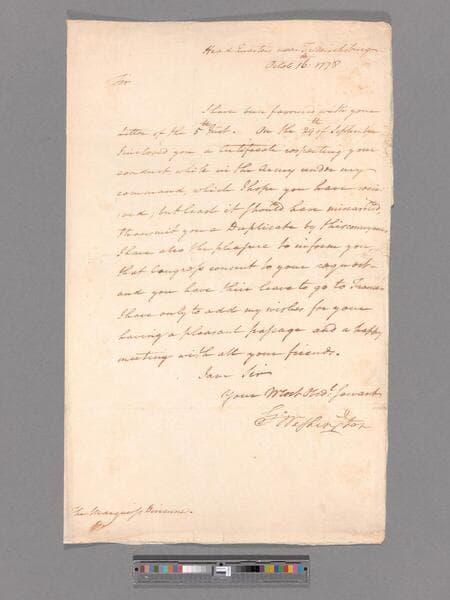 Head Quarters near Fredericksburg
Octob 16th 1778
Sir
I have been favoured with your
letter of the 5th Inst. On the 29th of September
I inclosed you a Certificate respecting your
conduct while in the Army under my
command, which I hope you have recei
ved, but least it should have miscarried,
transmit you a Duplicate by this conveyance
I have also the pleasure to inform you,
that Congress consent to your request
and you have their leave to go to France
I have only to add my wishes for your
having a pleasant passage and a happy
meeting with all your friends.
I am Sir
Your Most Obdt. Servant
Go Washington
The Marquis De Vienne.